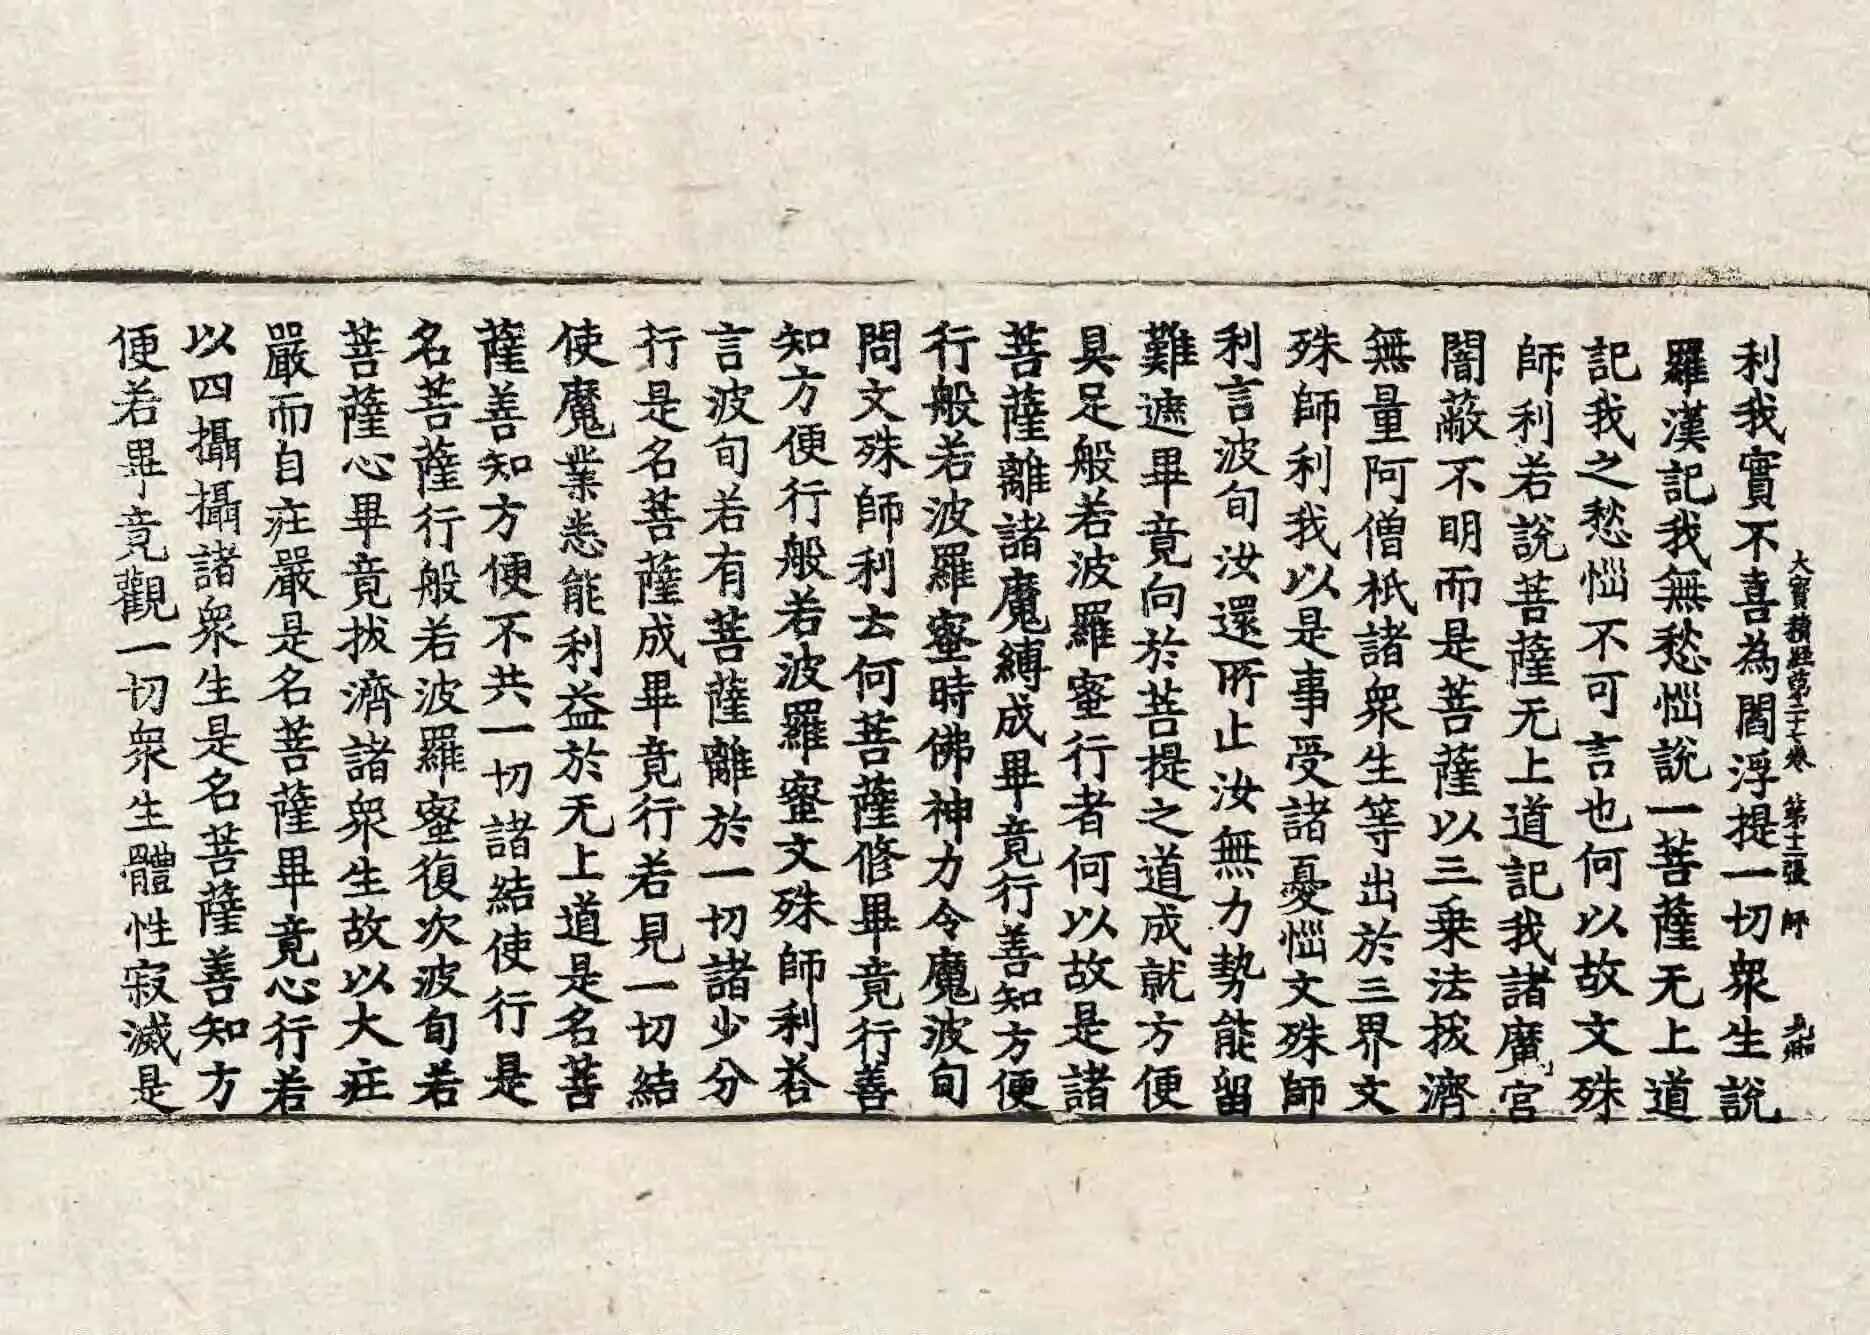 大寶積經第二十七卷　第十二張　師
利我實不喜為閻浮提一切衆生說
羅漢記我無愁惱說一菩薩无上道
記我之愁惱不可言也何以故文殊
師利若說菩薩无上道記我諸魔宮
闇蔽不明而是菩薩以三乗法拔濟
無量阿僧祇諸衆生等出於三界文
殊師利我以是事受諸憂惱文殊師
利言波旬汝還所止汝無力勢能留
難遮畢竟向於菩提之道成就方便
具足般若波羅蜜行者何以故是諸
菩薩離諸魔縛成畢竟行善知方便
行般若波羅蜜時佛神力令魔波旬
問文殊師利去何菩薩修畢竟行善
知方便行般若波羅蜜文殊師利荅
言波旬若有菩薩離於一切諸少分
行是名菩薩成畢竟行若見一切結
使魔業悉能利益於无上道是名菩
薩善知方便不共一切諸結使行是
名菩薩行般若波羅蜜復次波旬若
菩薩心畢竟拔濟諸衆生故以大莊
嚴而自莊嚴是名菩薩畢竟心行若
以四攝攝諸衆生是名菩薩善知方
便若畢竟觀一切衆生體性寂滅是